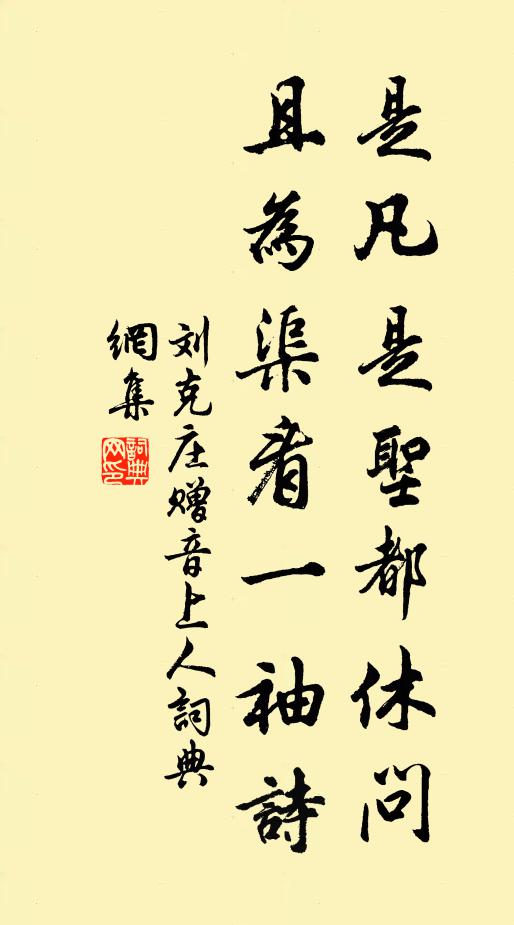 是凡是聖都休問
且為渠看一袖詩
刘克庄赠音上人詞典
網集
詞典网印